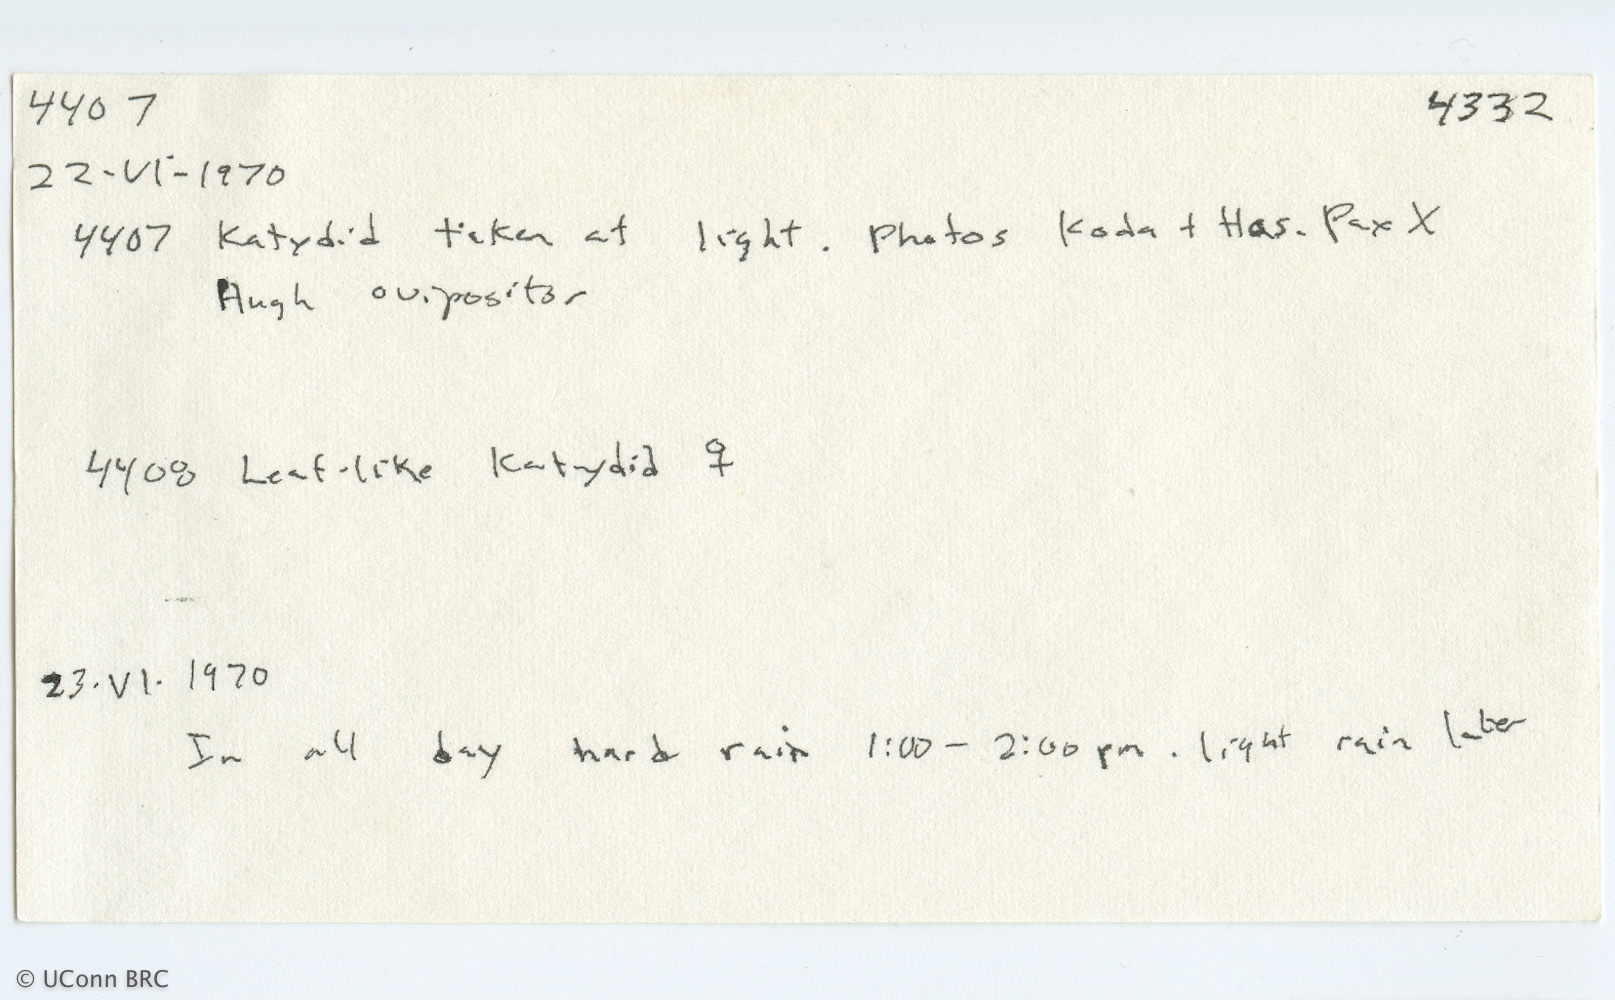 4407 4332
22-VI-1970
4407 Katydid taken at light. Photos Koda + Has. Pax X
Hugh ovipositor
4408 Leaf-like Katydid ♀
23.VI. 1970
In all day hard rain 1:00 - 2:00 pm. light rain later
© UConn BRC